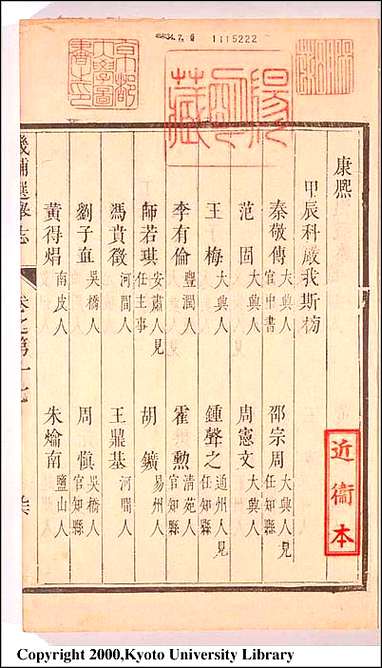 1115222
京都
大學圖
書之印
康熙
甲辰科嚴我斯榜
秦敬傳 大興人
官中書
邵宗周 大興人見
任知縣
范固 大興人
周憲文 大興人
王梅 大興人
鍾聲之 通州人見
任知縣
李有倫 豐潤人
霍勲 清苑人
官知縣
師若琪 安肅人見
任主事
胡鑛 易州人
馮貴徵 河間人
王鼎基 河間人
劉子 吳橋人
周慎 吳橋人
官知縣
黃得焻 南皮人
朱爚南 鹽山人
畿輔選舉志
近衞本
Copyright 2000,Kyoto University Library